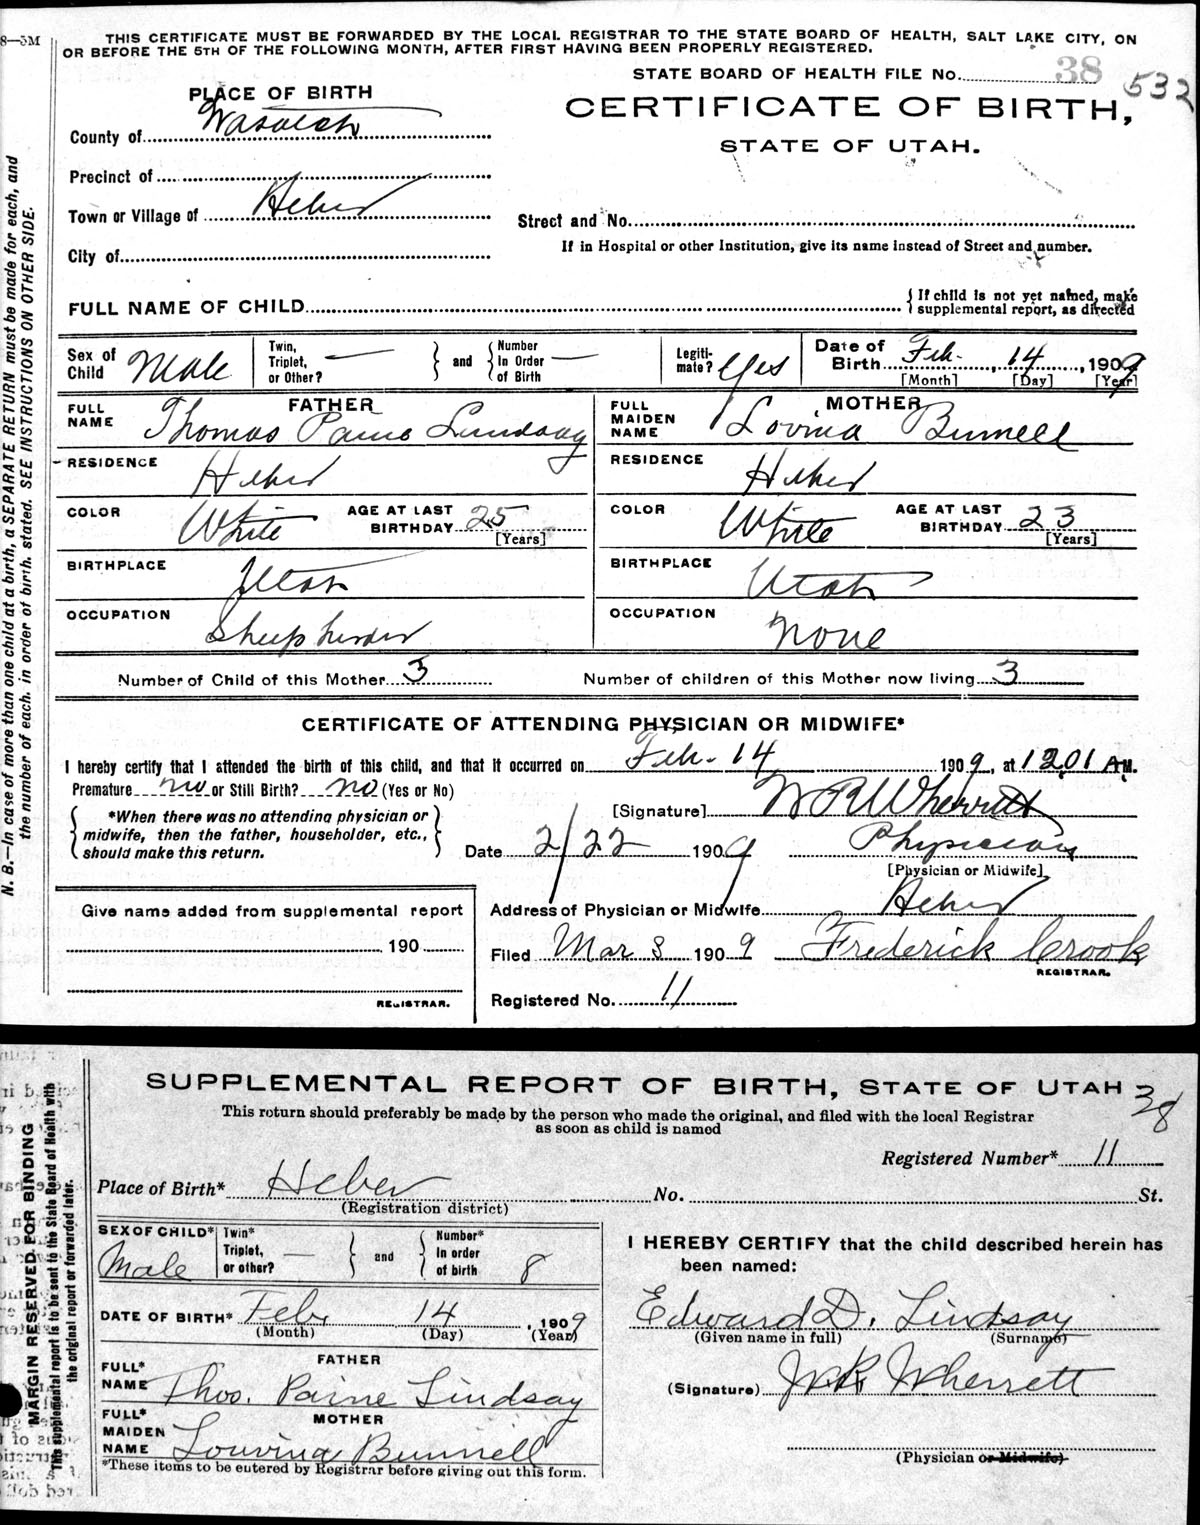 8—5M
THIS CERTIFICATE MUST BE FORWARDED BY THE LOCAL REGISTRAR TO THE STATE BOARD OF HEALTH, SALT LAKE CITY, ON
OR BEFORE THE 5TH OF THE FOLLOWING MONTH, AFTER FIRST HAVING BEEN PROPERLY REGISTERED.
STATE BOARD OF HEALTH FILE No. 38 532
PLACE OF BIRTH
CERTIFICATE OF BIRTH,
STATE OF UTAH.
County of Wasatch
Precinct of
Town or Village of Heber
Street and No.
City of
If in Hospital or other Institution, give its name instead of Street and number.
FULL NAME OF CHILD
{ If child is not yet named, make
supplemental report, as directed
Sex of Child Male
Twin, Triplet, or Other? —
and
Number In Order of Birth —
Legiti-mate? Yes
Date of Birth Feb. 14, 1909
[Month] [Day] [Year]
FATHER
FULL NAME Thomas Paine Lindsay
RESIDENCE Heber
COLOR White
AGE AT LAST BIRTHDAY 25
[Years]
BIRTHPLACE Utah
OCCUPATION Sheep herder
MOTHER
FULL MAIDEN NAME Lovina Bunnell
RESIDENCE Heber
COLOR White
AGE AT LAST BIRTHDAY 23
[Years]
BIRTHPLACE Utah
OCCUPATION None
Number of Child of this Mother 3
Number of children of this Mother now living 3
CERTIFICATE OF ATTENDING PHYSICIAN OR MIDWIFE*
I hereby certify that I attended the birth of this child, and that it occurred on Feb. 14 1909, at 1201 A.M.
Premature no or Still Birth? no (Yes or No)
[Signature] W R Wherritt
{ *When there was no attending physician or
midwife, then the father, householder, etc.,
should make this return. }
Date 2/22 1909
Physician
[Physician or Midwife]
Address of Physician or Midwife Heber
Filed Mar 8 1909 Frederick Crook
REGISTRAR.
Registered No. 11
Give name added from supplemental report
190
REGISTRAR.
N. B.—In case of more than one child at a birth, a SEPARATE RETURN must be made for each, and
the number of each, in order of birth, stated. SEE INSTRUCTIONS ON OTHER SIDE.
SUPPLEMENTAL REPORT OF BIRTH, STATE OF UTAH 38
This return should preferably be made by the person who made the original, and filed with the local Registrar
as soon as child is named
Registered Number* 11
Place of Birth* Heber No. St.
(Registration district)
SEX OF CHILD* Male
Twin* Triplet, or other? —
and
Number* In order of birth 8
DATE OF BIRTH* Feb. 14, 1909
(Month) (Day) (Year)
FATHER
FULL* NAME Thos. Paine Lindsay
MOTHER
FULL* MAIDEN NAME Louvina Bunnell
*These items to be entered by Registrar before giving out this form.
I HEREBY CERTIFY that the child described herein has
been named:
Edward D. Lindsay
(Given name in full) (Surname)
(Signature) W R Wherritt
(Physician or Midwife)
MARGIN RESERVED FOR BINDING
This supplemental report is to be sent to the State Board of Health with
the original report or forwarded later.